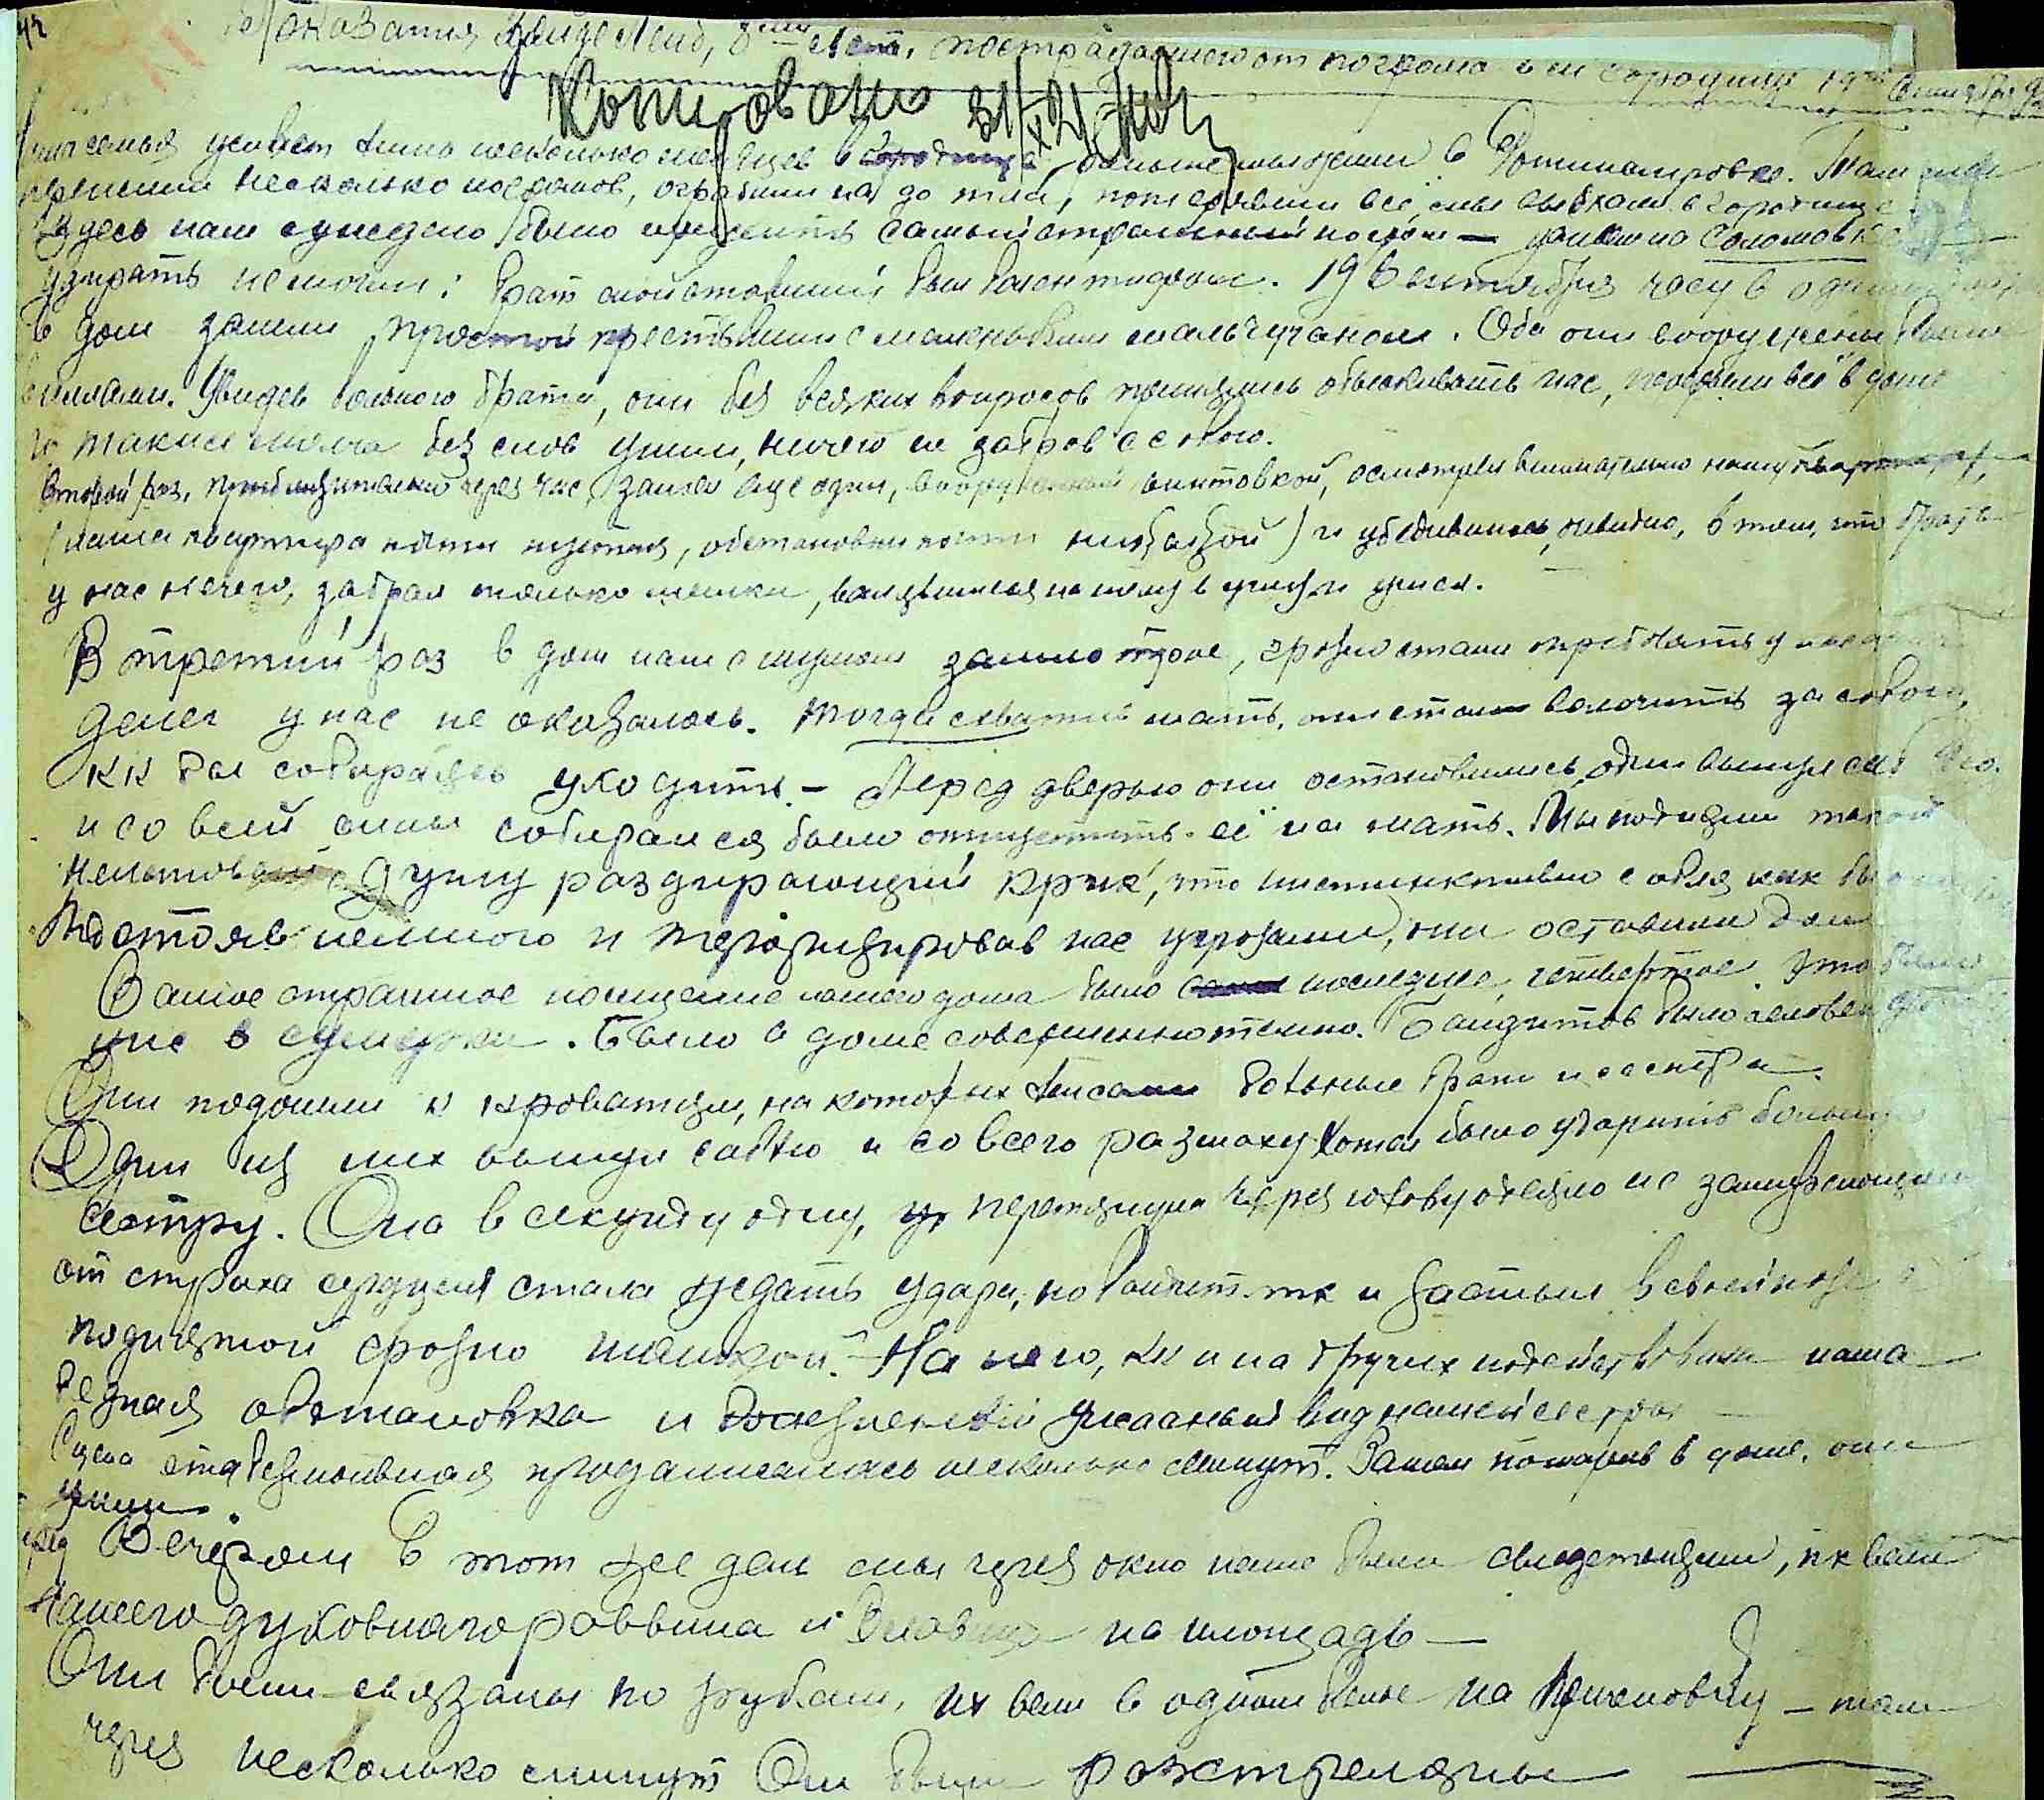 Показания 8ми лет, пострадавшего от погрома в м Городище 19го Сентября
Копировано 31/X 21
семья живет лишь несколько месяцев в Городище, раньше мы жили в Ротмистровке. Там мы
пережили несколько погромов, ограбили нас до тла, потерявши все, мы выехали в Городище.
Здесь нам суждено было пережить самый страшный погром —
удирать не могли: брат мой оставший был болен тифом. 19 Сентября часу в
в дом зашли простой крестьянин с маленьким мальчуганом. Оба они вооружены были
Увидев больного брата, они без всяких вопросов принялись обыскивать нас, все в доме
и также молча без слов ушли, ничего не забрав с собою.
Второй раз, приблизительно через час, зашел еще один, вооруженный винтовкой, осмотрел внимательно нашу квартиру,
(наша квартира почти пустая, обстановки почти никакой) и убедившись, очевидно, в том, что брать
у нас нечего, забрал только мешки, валявшиеся на полу в углу и ушел.
В третий раз в дом наш с шумом зашло трое, грозно стали требовать у нас
денег у нас не оказалось. Тогда схватив мать, они стали волочить за собою,
как бы собираясь уходить. — Перед дверью они остановились, один вынул саб
и со всей силы собирался было опустить её на мать. Мы подняли такой
душу раздирающий крик, что инстинктивно
Постояв немного и терроризировав нас угрозами, они оставили дом
Самое страшное посещение нашего дома было последнее, четвертое. Это было
уже в сумерки. Было в доме совершенно темно. Бандитов было человек
Они подошли к кроватям, на которых лежали больные брат и сестра.
Один из них вынул саблю и со всего размаху хотел было ударить больную
сестру. Она в секунду одну, перетянула через голову одеяло и с замирающим
от страха сердцем стала ждать удара, но бандит так и застыл в своей позе с
поднятой грозно шашкой. — На него, как и на других подействовала наша
бедная обстановка и болезненный ужасный вид нашей сестры —
Сцена эта безмолвная продолжалась несколько минут. Затем пошарив в доме, они
ушли.
Вечером в тот же день мы через окно наше были свидетелями, как вели
нашего духовного раввина и на площадь —
Они были связаны по рукам, их вели в одном белье на — там
через несколько минут они были расстреляны —